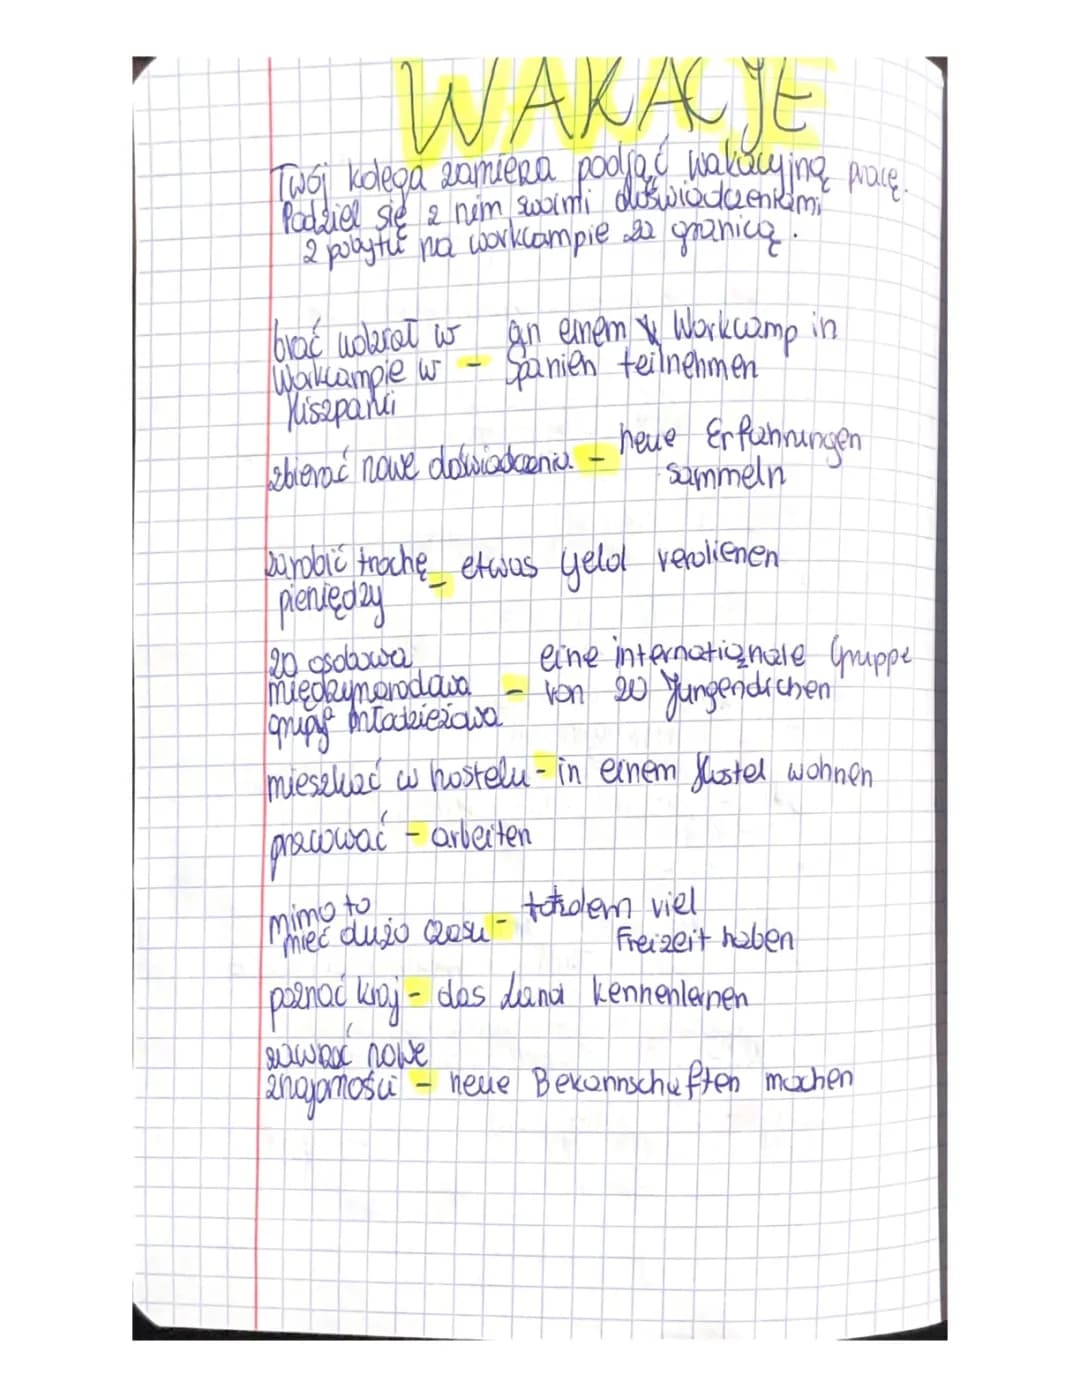 WAKACJE
Twój kolega zamierza podjąć wakacyjną pracę.
Podziel się z nim swoimi doświadczeniami
z pobytu na workcampie za granicą.
brać udział w - an einem Workcamp in
Workcampie w Spanien teilnehmen
Hiszpanii
zbierać nowe doświadczenia - neue Erfahrungen
sammeln
zarobić trochę - etwas Geld verdienen
pieniędzy
20 osobowa eine internationale Gruppe
międzynarodowa - von 20 Jungendichen
grupa młodzieżowa
mieszkać w hostelu - in einem Hostel wohnen
pracować - arbeiten
mimo to - trotzdem viel
mieć dużo czasu Freizeit haben
poznać kraj - das Land kennenlernen
zawrzeć nowe
znajomości - neue Bekannschaften machen